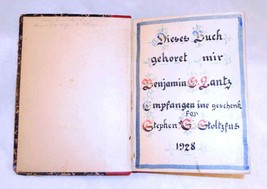 Dieses Buch
gehoret mir
Benjamin S. Lantz
Empfangen ine geschenk
For
Stephen S. Stoltzfus
1928